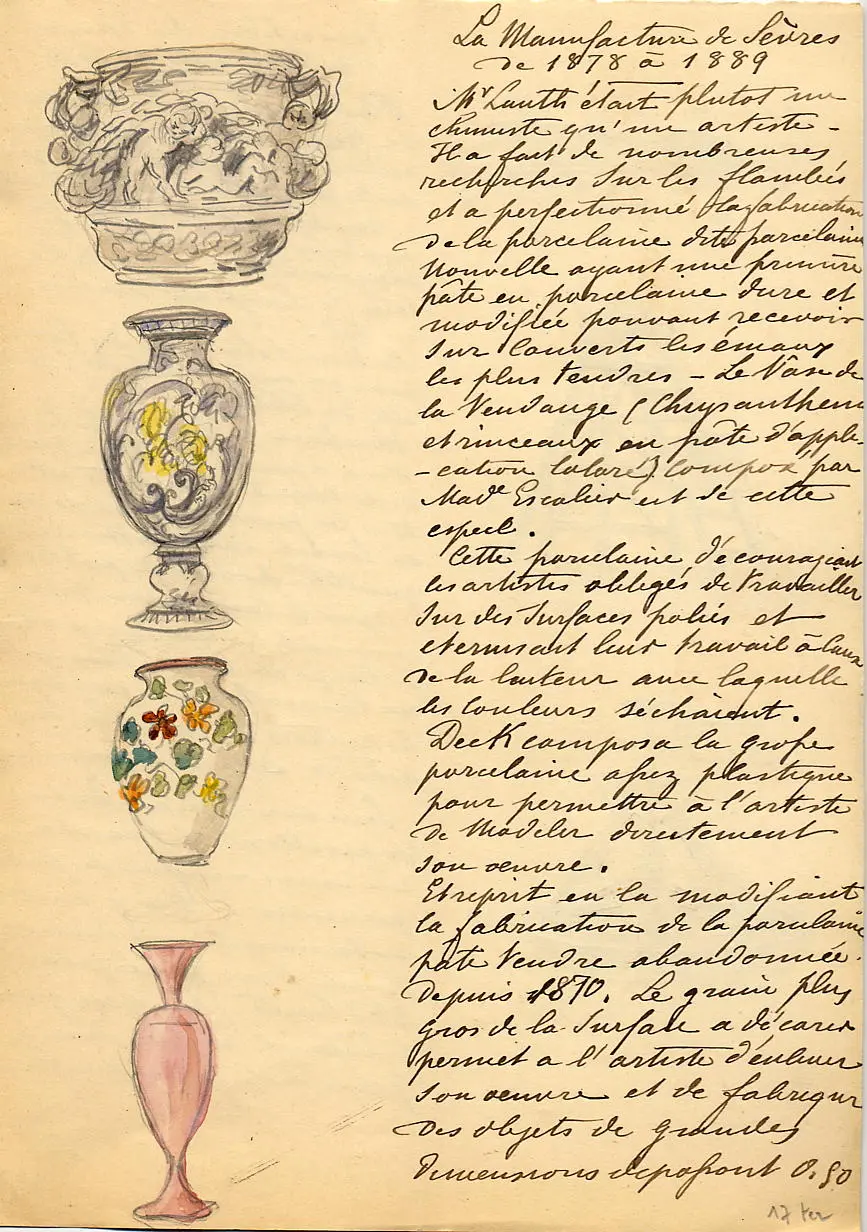 La Manufacture de Sèvres
de 1878 à 1889
Mr Lauth était plutot un
chimiste qu'un artiste -
Il a fait de nombreuses
recherches sur les flambés
et a perfectionné la fabrication
de la porcelaine dite porcelaine
nouvelle ayant une première
pâte en porcelaine dure et
modifiée pouvant recevoir
sur couverts les émaux
les plus tendres - Le Vâse de
la Vendange (Chrysanthem
et rinceaux en pâte d'appli-
-cation coloré) composé par
Made Escalier est de cette
espece.
Cette porcelaine décourageait
les artistes obligés de travailler
sur des surfaces polies et
leur travail à cause
de la lenteur avec laquelle
les couleurs séchaient.
Deck composa la grosse
porcelaine assez plastique
pour permettre à l'artiste
de modeler directement
son oeuvre.
Et reprit en la modifiant
la fabrication de la porcelaine
pâte tendre abandonnée
depuis 1870. Le grain plus
gros de la surface a décorer
permet a l'artiste d'enlever
son oeuvre et de fabriquer
des objets de grandes
dimensions depassant 0,50
17 ter